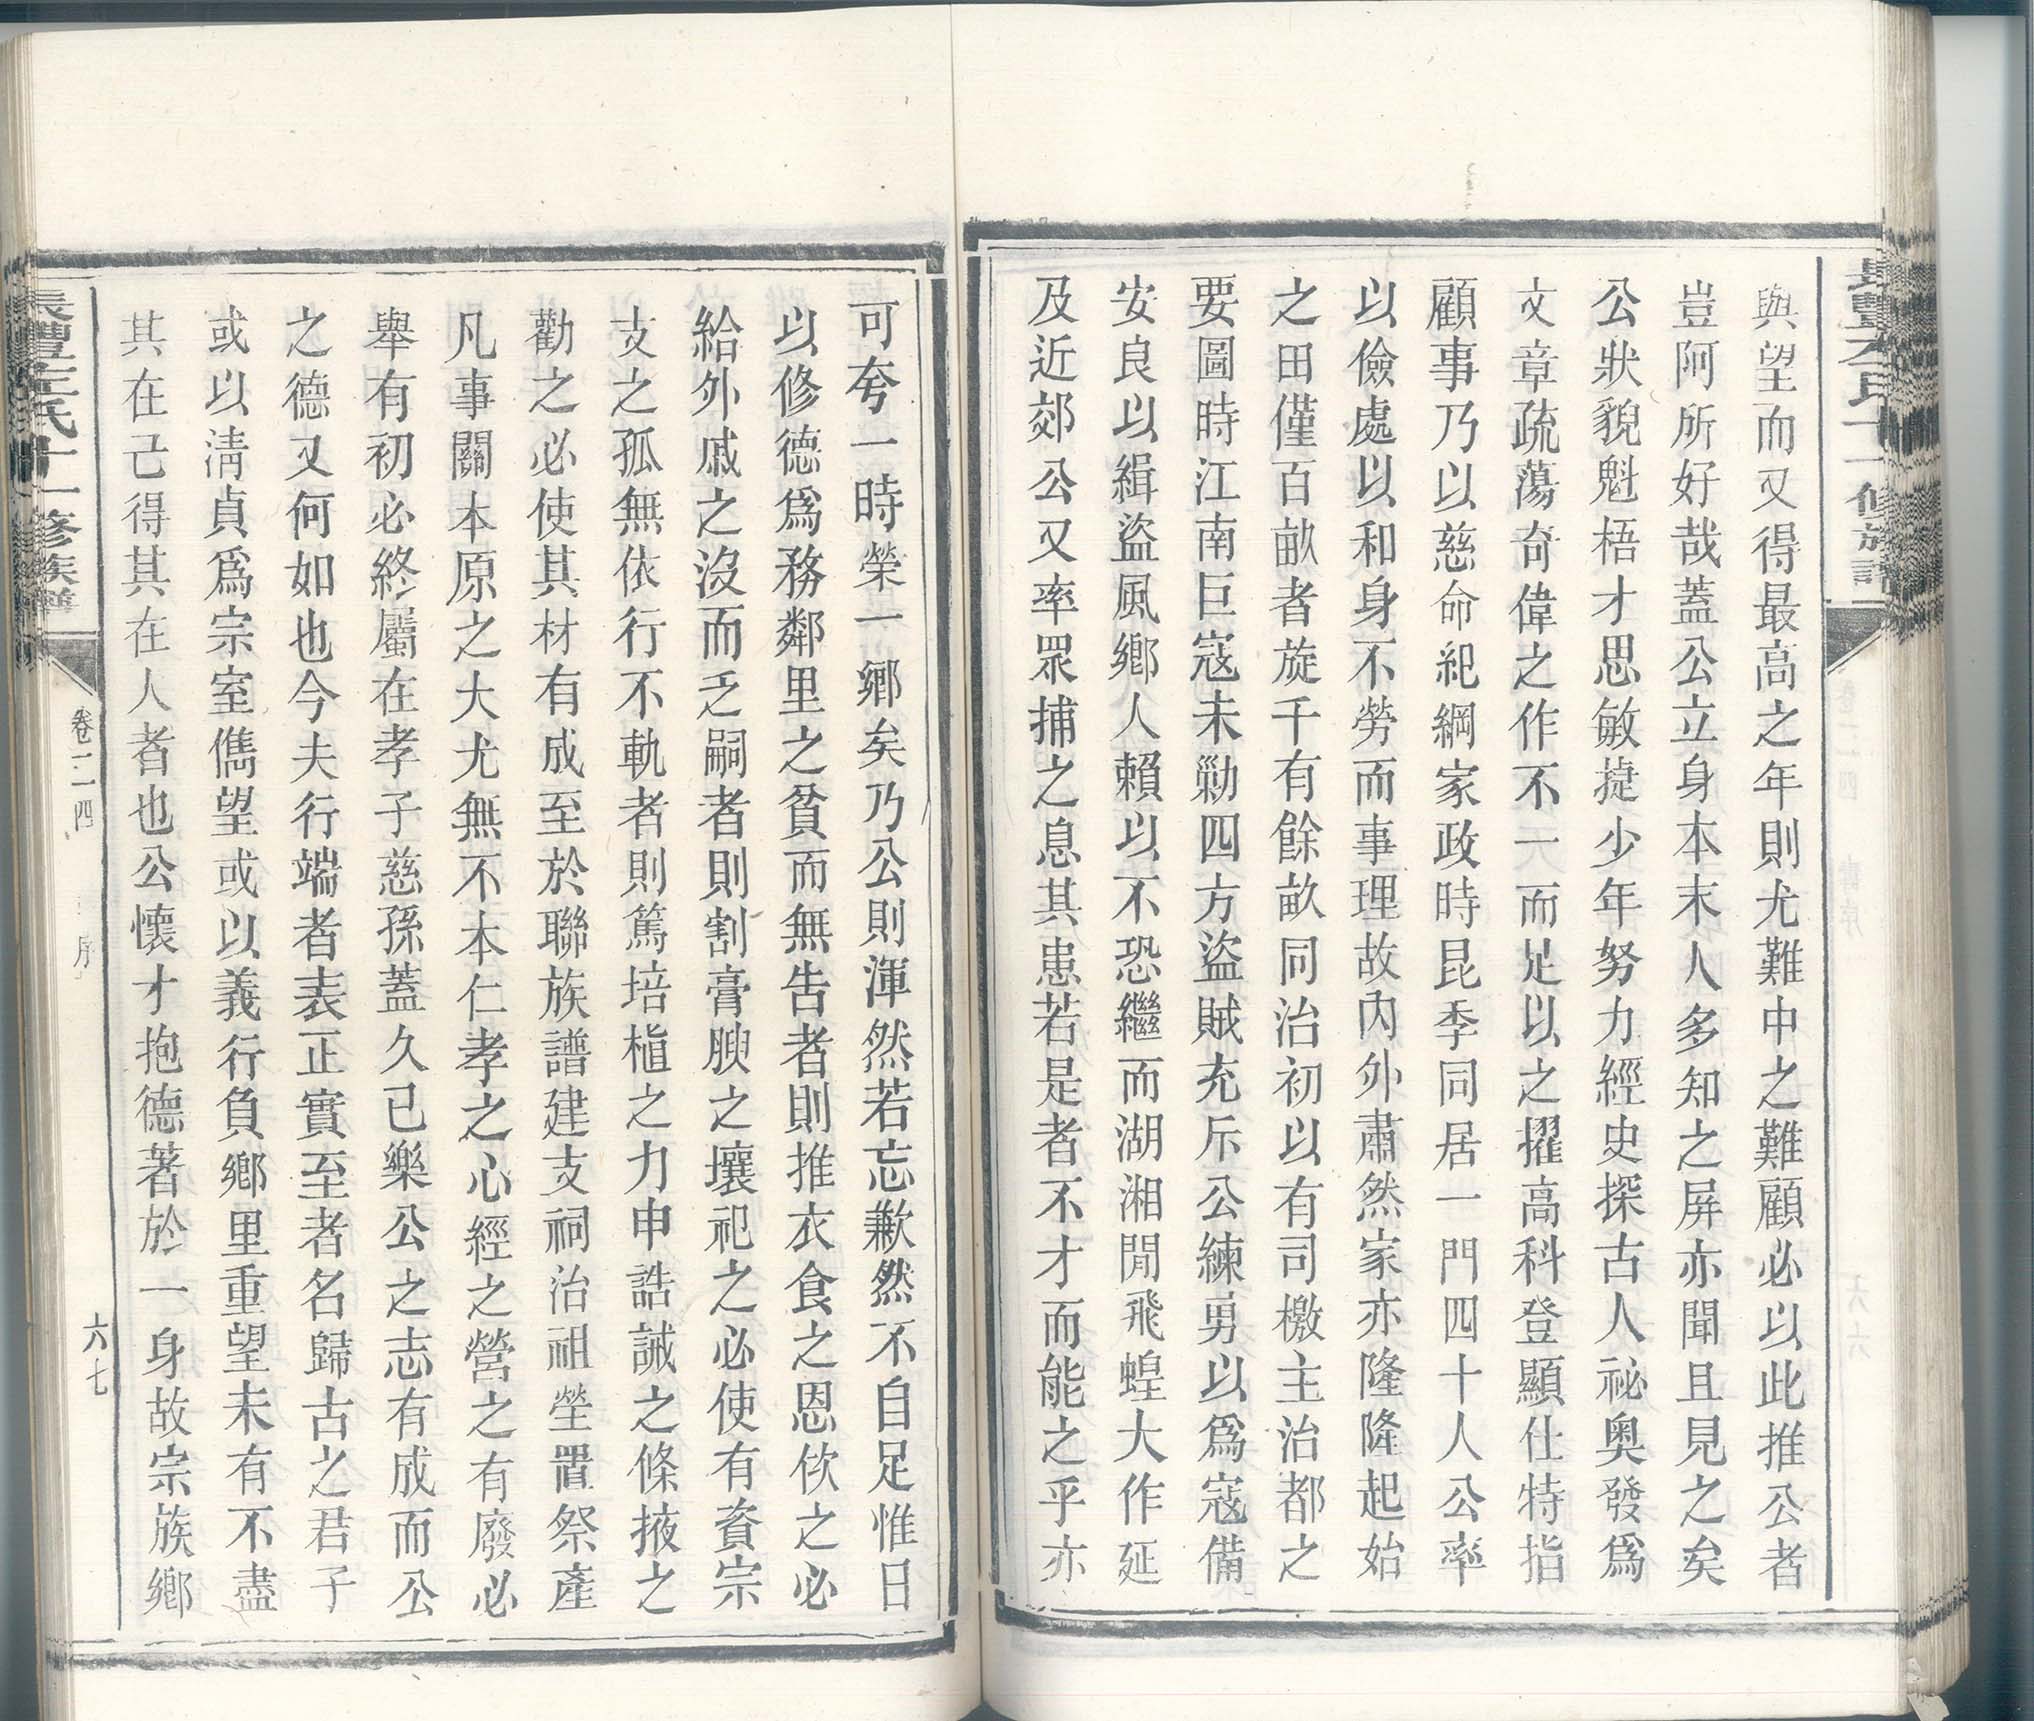 與望而又得最高之年則尤難中之難顧必以此推公者
豈阿所好哉蓋公立身本末人多知之屏亦聞且見之矣
公狀貌魁梧才思敏捷少年努力經史探古人祕奧發爲
文章疏蕩奇偉之作不一而足以之擢高科登顯仕特指
顧事乃以慈命紀綱家政時昆季同居一門四十人公率
以儉處以和身不勞而事理故內外肅然家亦隆隆起始
之田僅百畝者旋千有餘畝同治初以有司檄主治都之
要圖時江南巨寇未勦四方盜賊充斥公練勇以爲寇備
安良以緝盜風鄉人賴以不恐繼而湖湘閒飛蝗大作延
及近郊公又率眾捕之息其患若是者不才而能之乎亦
可夸一時榮一鄉矣乃公則渾然若忘歉然不自足惟日
以修德爲務鄰里之貧而無告者則推衣食之恩佽之必
給外戚之沒而乏嗣者則割膏腴之壤祀之必使有資宗
支之孤無依行不軌者則篤培植之力申誥誡之條掖之
勸之必使其材有成至於聯族譜建支祠治祖塋置祭產
凡事關本原之大尤無不本仁孝之心經之營之有廢必
舉有初必終屬在孝子慈孫蓋久已樂公之志有成而公
之德又何如也今夫行端者表正實至者名歸古之君子
或以淸貞爲宗室儁望或以義行負鄉里重望未有不盡
其在己得其在人者也公懷才抱德著於一身故宗族鄉
氏十一修族譜
卷二四
序
六七